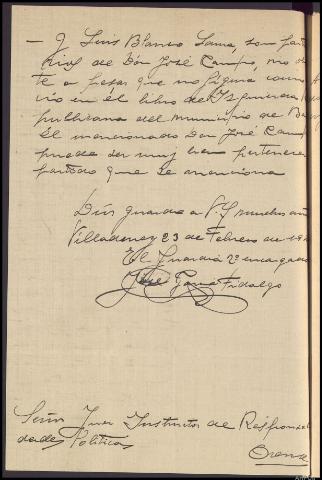 — J Luis Blanco Lama, son par
de Don José Campo, no
te a pesar que no figura como
en el libro de Izquierda
publicana del municipio de
El mencionado Don José Cam
puede ser muy bien pertenece
partido que se menciona
Dios guarde a V.S. muchos añ
23 de Febrero de 19
El Guardia 2º encargado
José Fidalgo
Señor Juez Instructor de Responsabi
dades Politicas
Orense